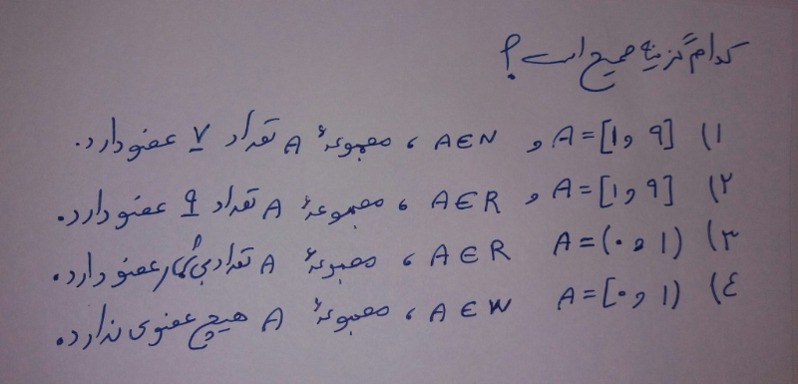 کدام گزینه صحیح است؟
۱) A=[۱و ۹] و A∈N ، مجموعهٔ A تعداد ۷ عضو دارد.
۲) A=[۱و ۹] و A∈R ، مجموعهٔ A تعداد ۹ عضو دارد.
۳) A=(۰ و ۱) A∈R ، مجموعهٔ A تعداد بی‌شمار عضو دارد.
٤) A=[۰و ۱) A∈W ، مجموعهٔ A هیچ عضوی ندارد.